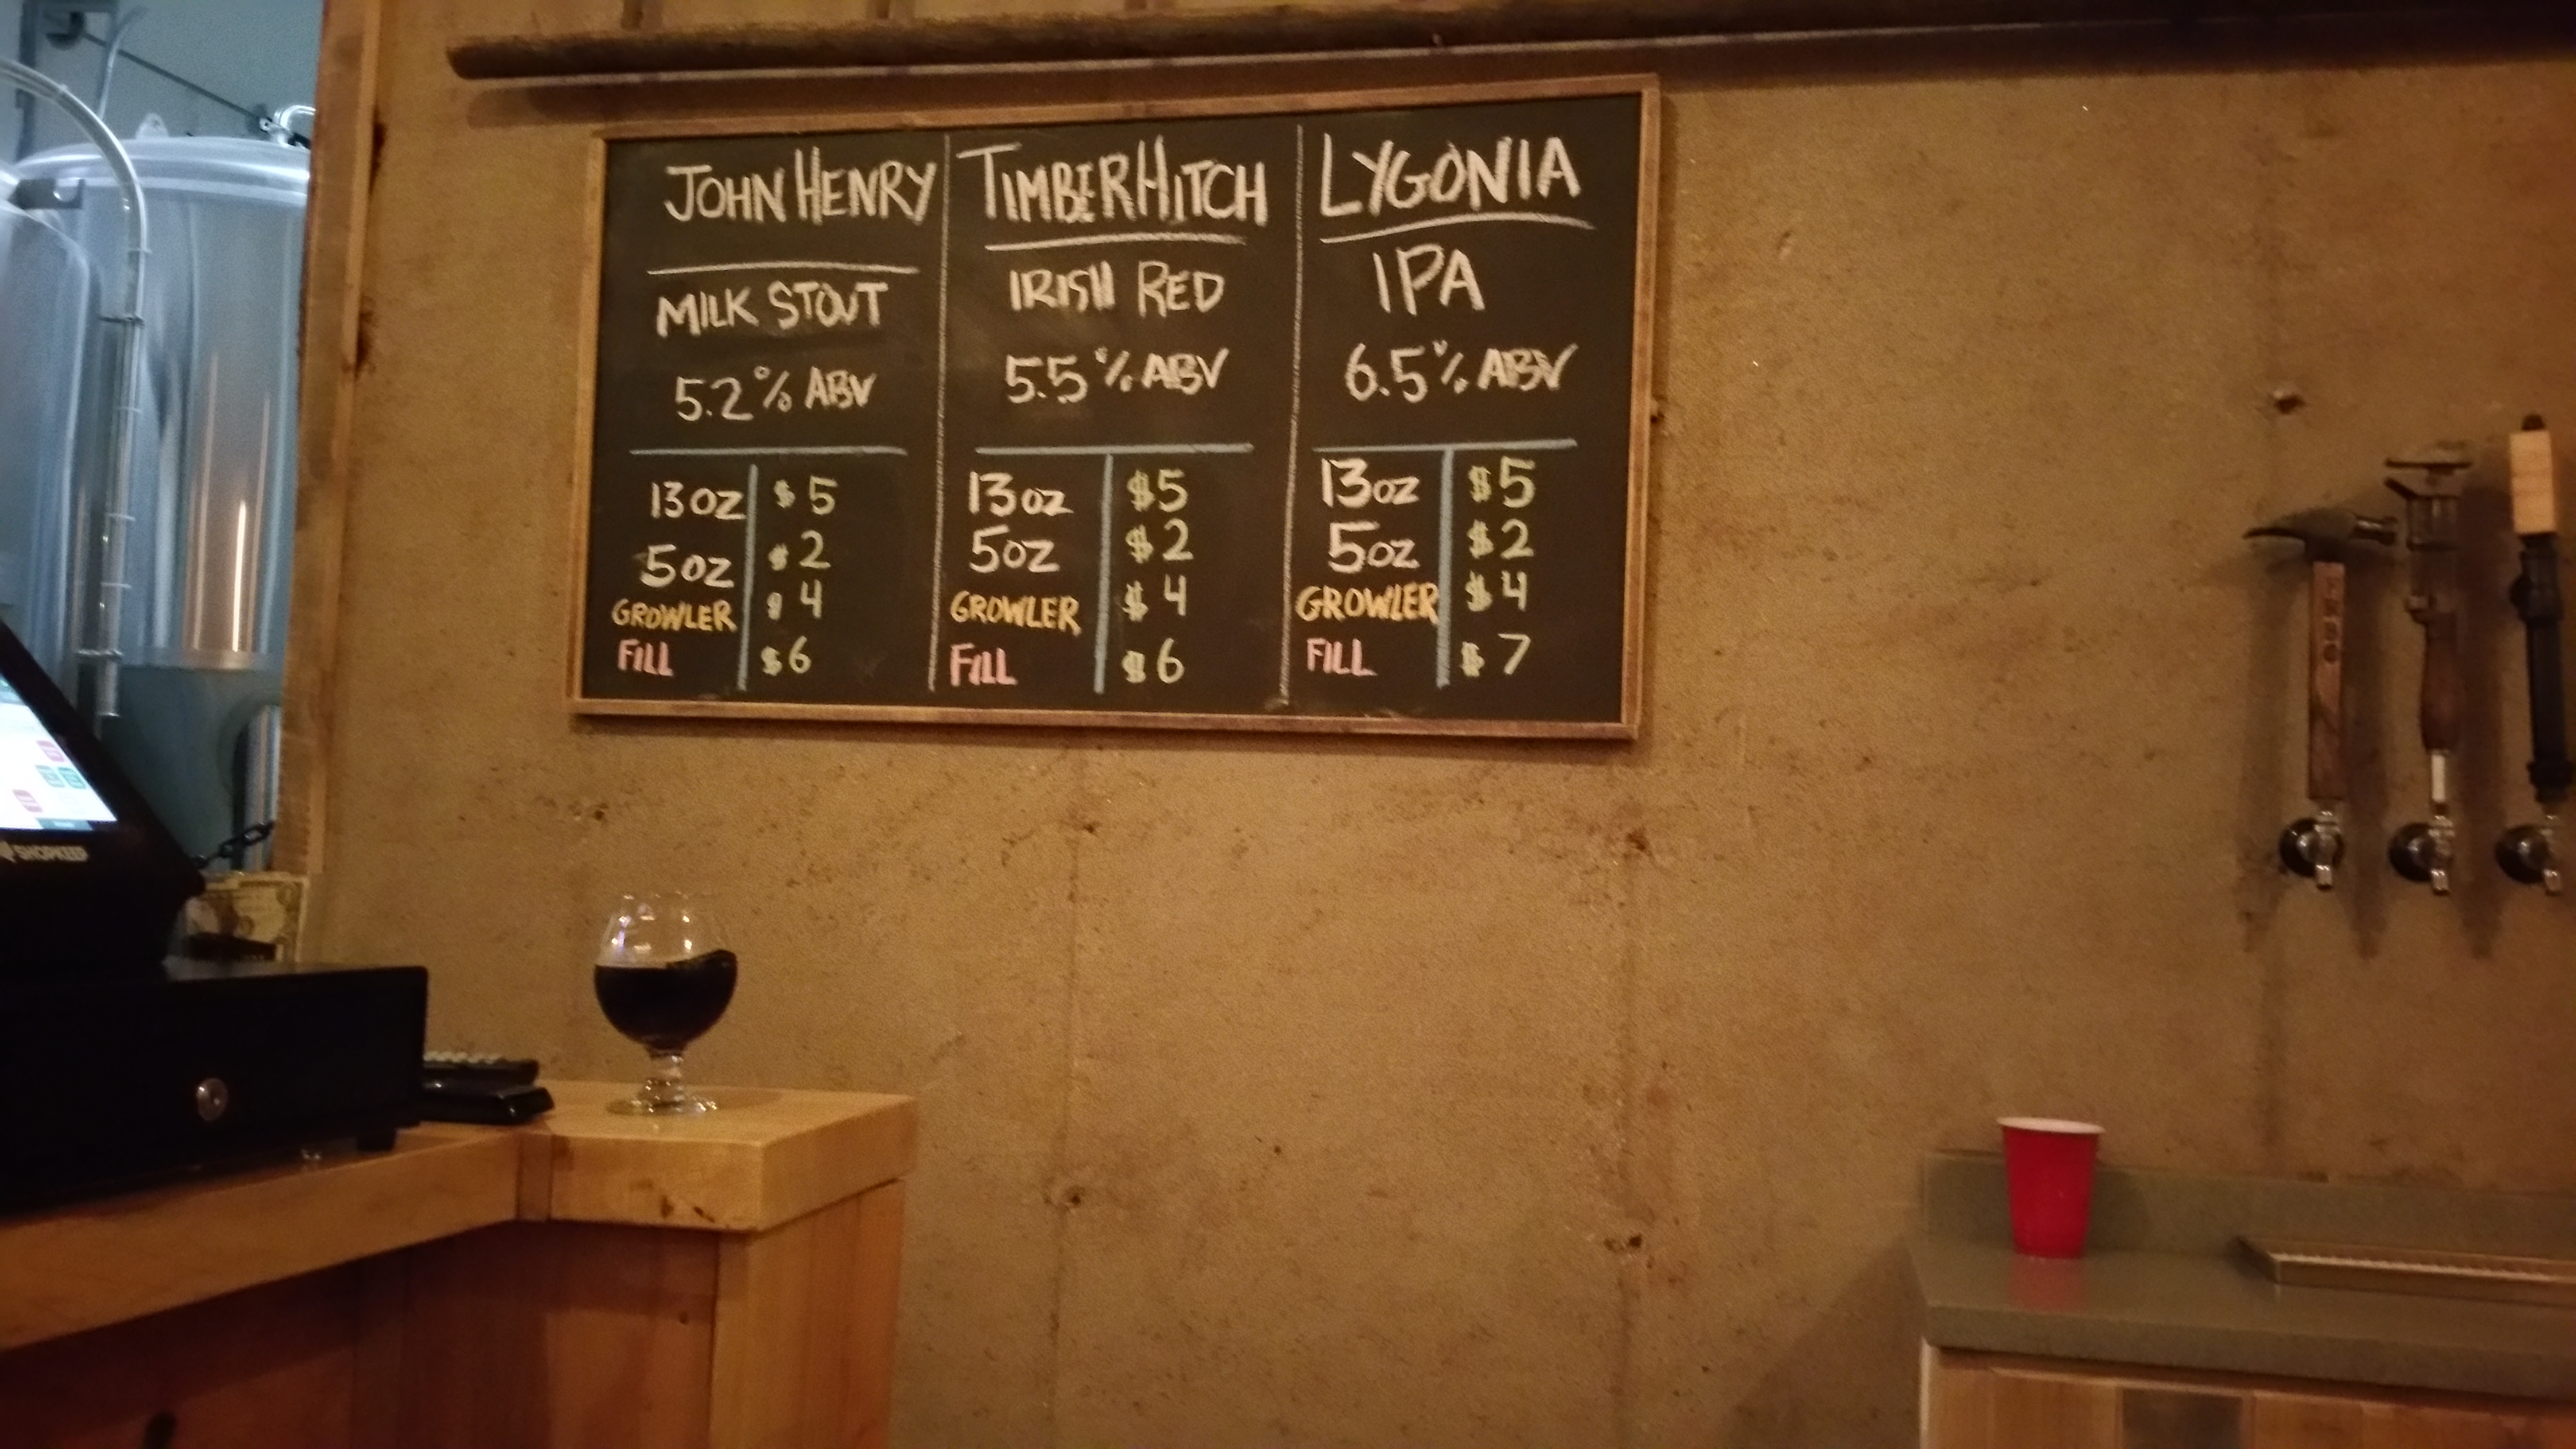 JOHN HENRY
MILK STOUT
5.2% ABV
13oz $5
5oz $2
GROWLER $4
FILL $6
TIMBERHITCH
IRISH RED
5.5% ABV
13oz $5
5oz $2
GROWLER $4
FILL $6
LYGONIA
IPA
6.5% ABV
13oz $5
5oz $2
GROWLER $4
FILL $7
SHOPKEEP